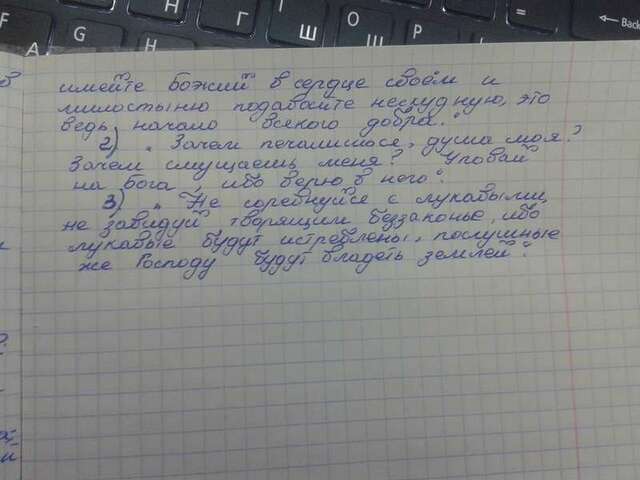 имейте Божий в сердце своём и
милостыню подавайте нескудную, это
ведь начало всякого добра."
2) „Зачем печалишься, душа моя?
Зачем смущаешь меня? Уповай
на Бога, ибо верю в него".
3) „Не соревнуйся с лукавыми,
не завидуй творящим беззаконье, ибо
лукавые будут истреблены, послушные
же Господу будут владеть землей".